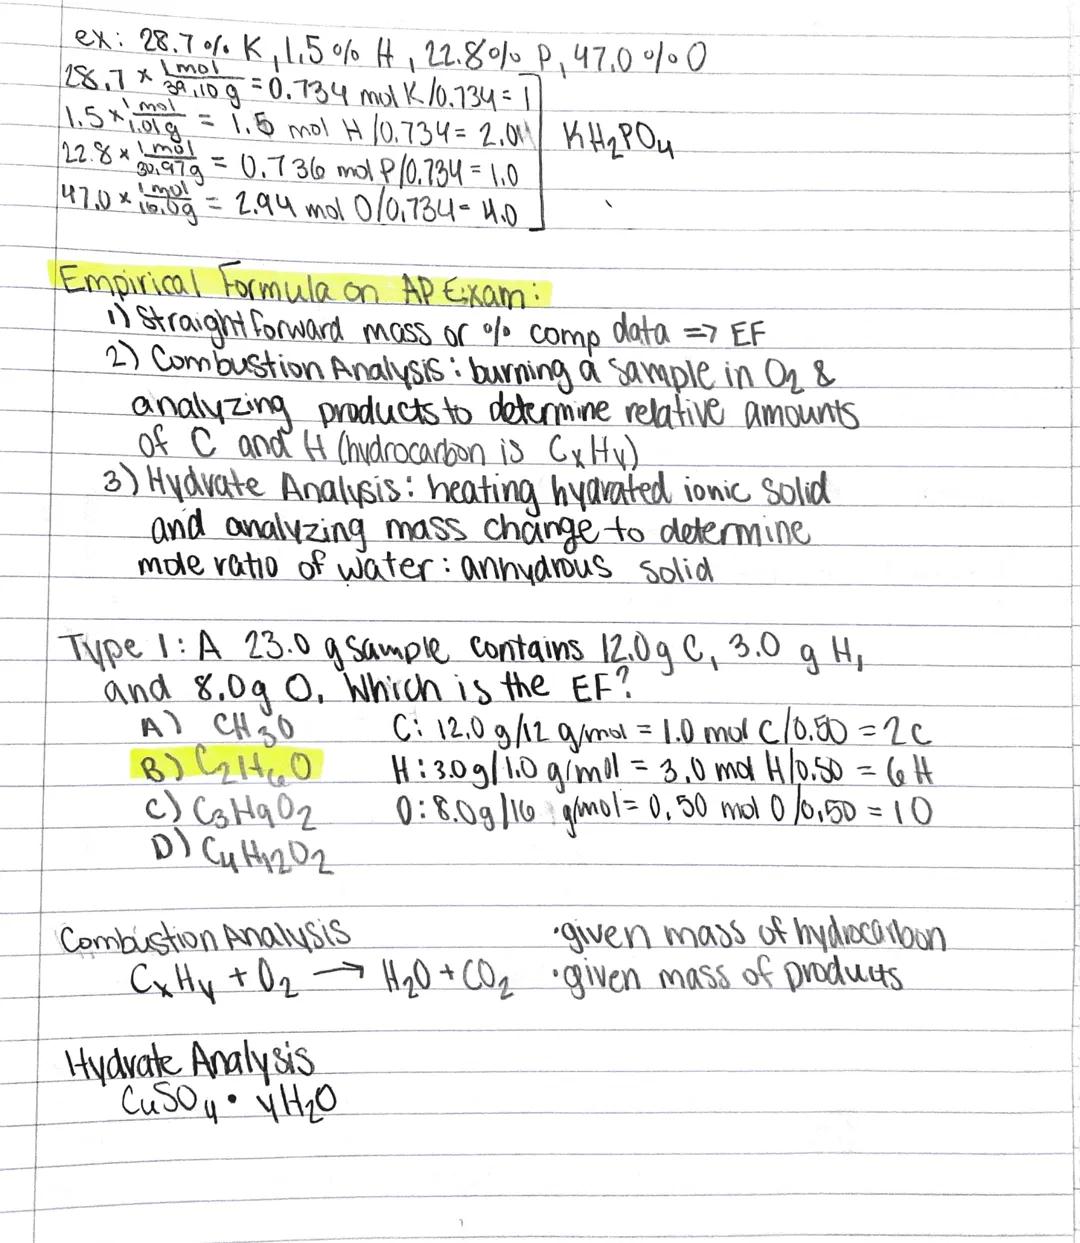 ex: 28.7% K, 1.5% H, 22.8% P, 47.0% O
28.7 × 1 mol/39.10 g = 0.734 mol K/0.734 = 1
1.5 × 1 mol/1.01 g = 1.5 mol H/0.734 = 2.01
KH₂PO₄
22.8 × 1 mol/30.97g = 0.736 mol P/0.734 = 1.0
47.0 × 1 mol/16.0g = 2.94 mol O/0.734 = 4.0
Empirical Formula on AP Exam:
1) Straightforward mass or % comp data => EF
2) Combustion Analysis: burning a sample in O₂ &
analyzing products to determine relative amounts
of C and H (hydrocarbon is CxHy)
3) Hydrate Analysis: heating hydrated ionic solid
and analyzing mass change to determine
mole ratio of water : anhydrous solid
Type 1: A 23.0 g sample contains 12.0g C, 3.0 g H,
and 8.0g O. Which is the EF?
A) CH₃O C: 12.0 g/12 g/mol = 1.0 mol C/0.50 = 2C
B) C₂H₆O H: 3.0g/1.0 g/mol = 3.0 mol H/0.50 = 6 H
C) C₃H₉O₂ O: 8.0g/16 g/mol = 0.50 mol O/0.50 = 1O
D) C₄H₁₂O₂
Combustion Analysis •given mass of hydrocarbon
CxHy + O₂ → H₂O + CO₂ •given mass of products
Hydrate Analysis
CuSO₄ • yH₂O